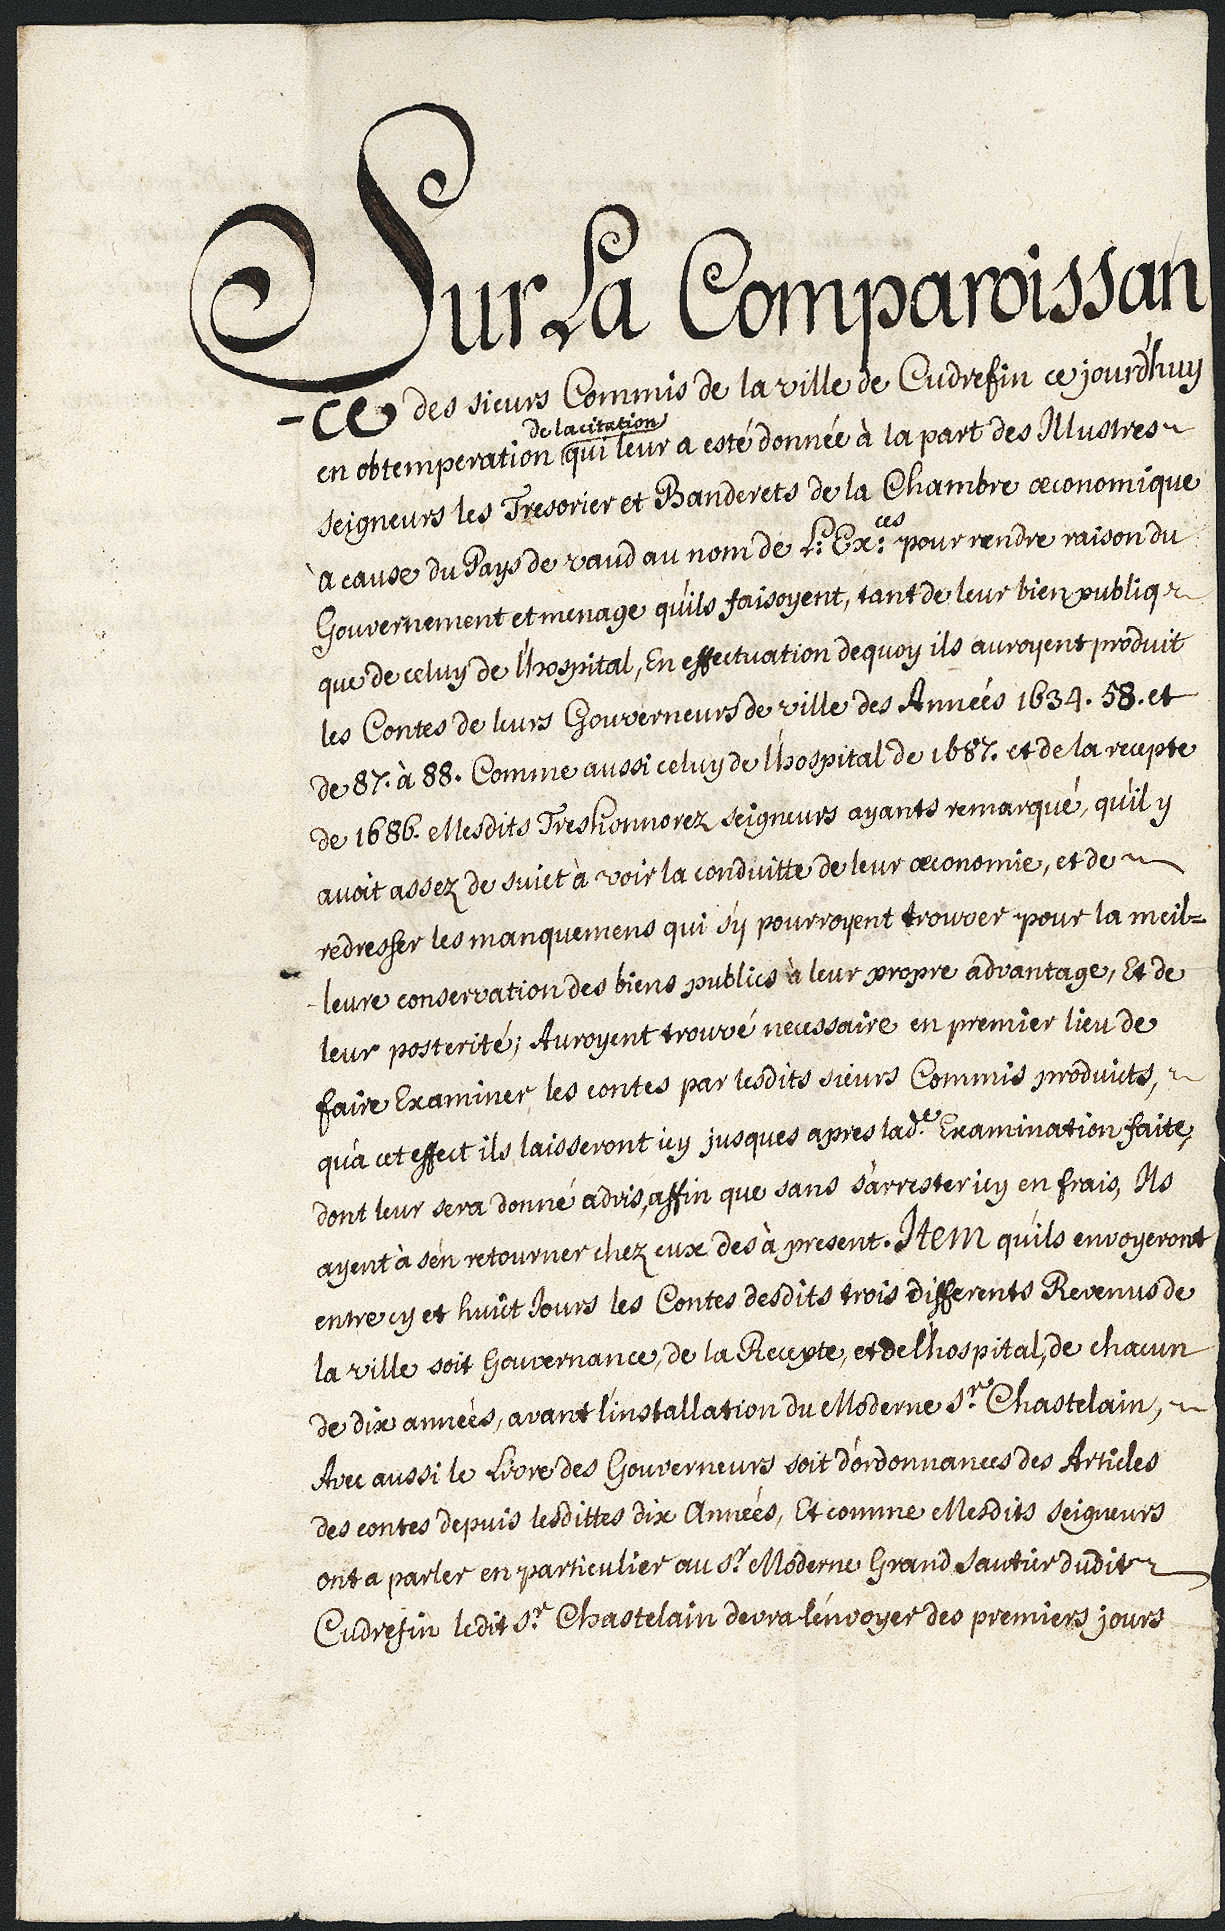 Sur La Comparoissan
-ce des sieurs Commis de la ville de Cudrefin ce jourd'huy
de la citation
en obtemperation qui leur a esté donnée à la part des Illustres
seigneurs les Tresorier et Banderets de la Chambre œconomique
à cause du Pays de vaud au nom de L: Ex:ces pour rendre raison du
Gouvernement et menage qu'ils faisoyent, tant de leur bien publiq
que de celuy de l'hospital, En effectuation dequoy ils auroyent produit
les Contes de leurs Gouverneurs de ville des Années 1634. 58. et
de 87. à 88. Comme aussi celuy de l'hospital de 1687. et de la recepte
de 1686. Mesdits Treshonnorez seigneurs ayants remarqué, qu'il y
avoit assez de suiet à voir la conduitte de leur œconomie, et de
redresser les manquemens qui s'y pourroyent trouver pour la meil=
-leure conservation des biens publics à leur propre advantage, Et de
leur posterité; Auroyent trouvé necessaire en premier lieu de
faire Examiner les contes par lesdits sieurs Commis produicts,
qu'à cet effect ils laisseront icy jusques apres lad.te Examination faite,
dont leur sera donné advis, affin que sans s'arrester icy en frais, Ils
ayent à s'en retourner chez eux des à present. Item qu'ils envoyeront
entre cy et huict Jours les Contes desdits trois differents Revenus de
la ville soit Gouvernance, de la Recepte, et de l'hospital, de chacun
de dix années, avant l'installation du Moderne S.r Chastelain,
Avec aussi le Livre des Gouverneurs soit d'ordonnances des Articles
des contes depuis lesdittes dix Années, Et comme Mesdits seigneurs
ont a parler en particulier au S.r Moderne Grand Sautier dudit
Cudrefin ledit S.r Chastelain devra l'envoyer des premiers jours